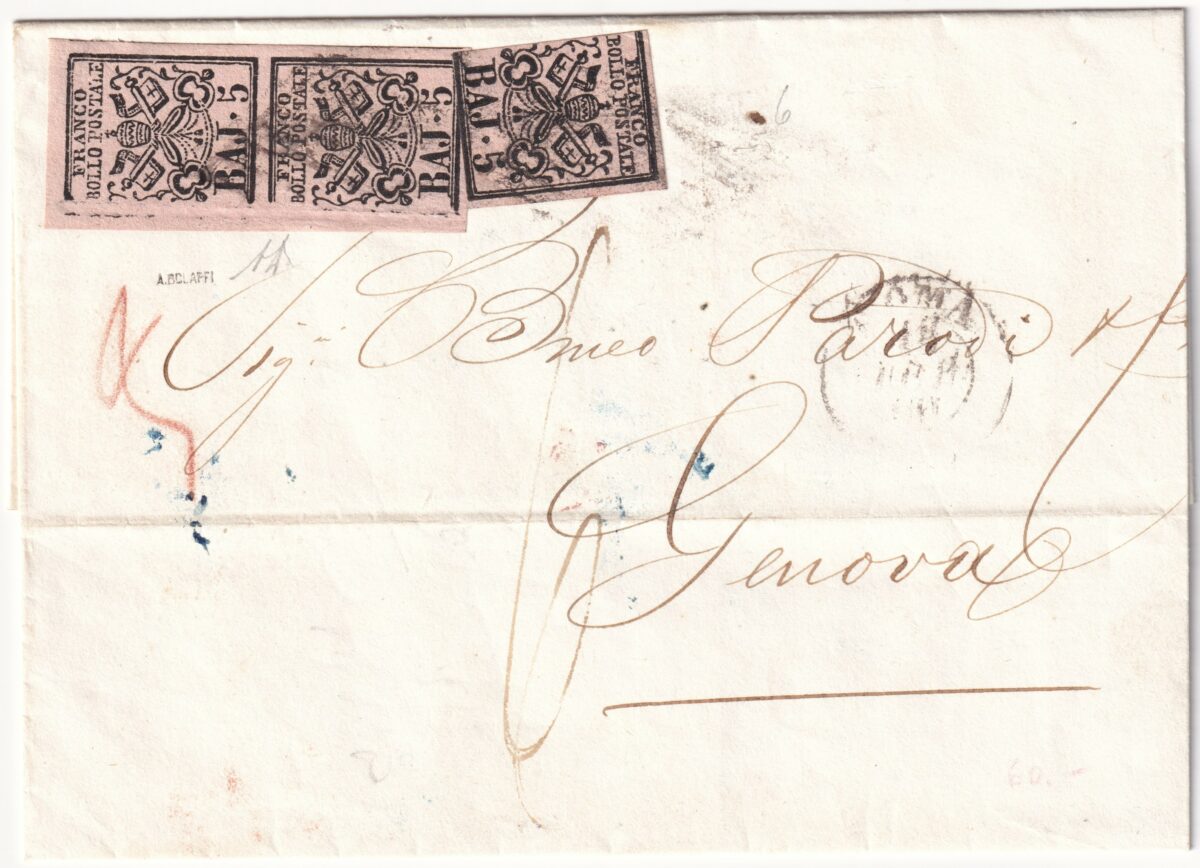 FRANCO
BOLLO POSTALE
BAJ. 5
FRANCO
BOLLO POSTALE
BAJ. 5
FRANCO
BOLLO POSTALE
BAJ. 5
6
A.BOLAFFI
Sig.ri Bmeo Parodi
ROMA
Genova
60.-